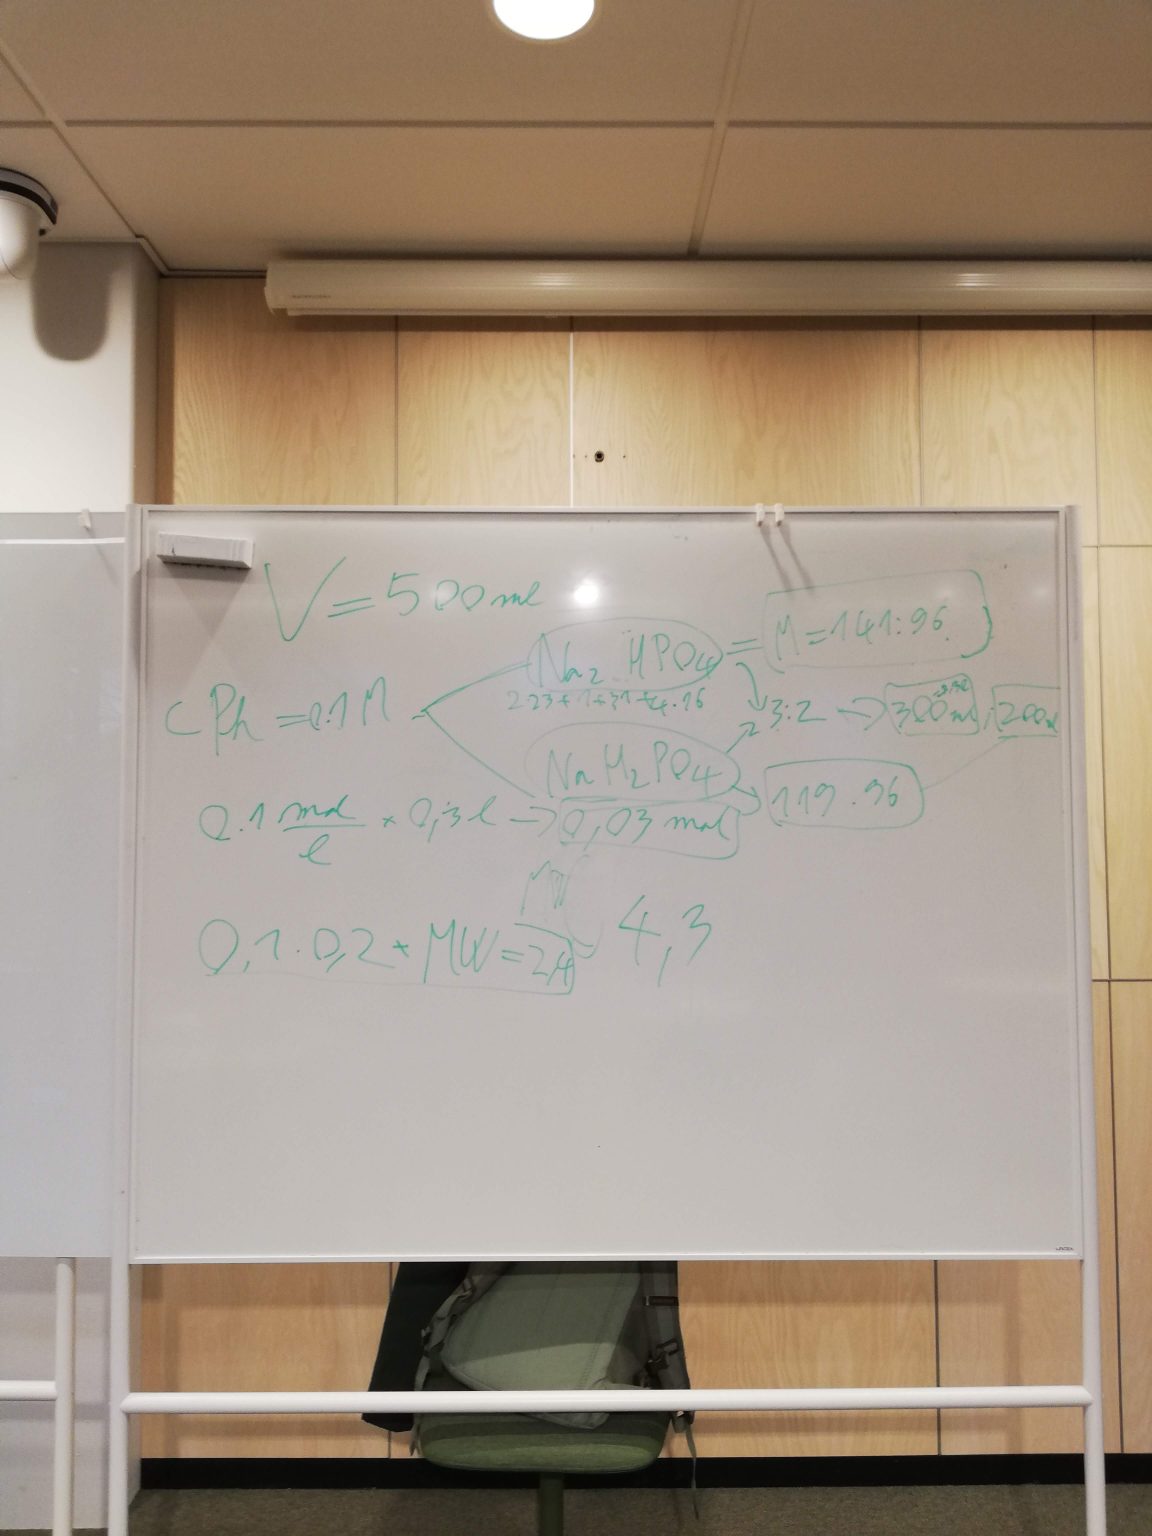 V = 500 ml
Na₂HPO₄ = M = 141.96
2·23+1+31+4·16
cPh = 0.1 M
3:2 → 300 ml : 200
NaH₂PO₄
119.96
0.1 mol/l × 0,3 l → 0,03 mol
MW
0,1 · 0,2 * MW = 2,4
4,3